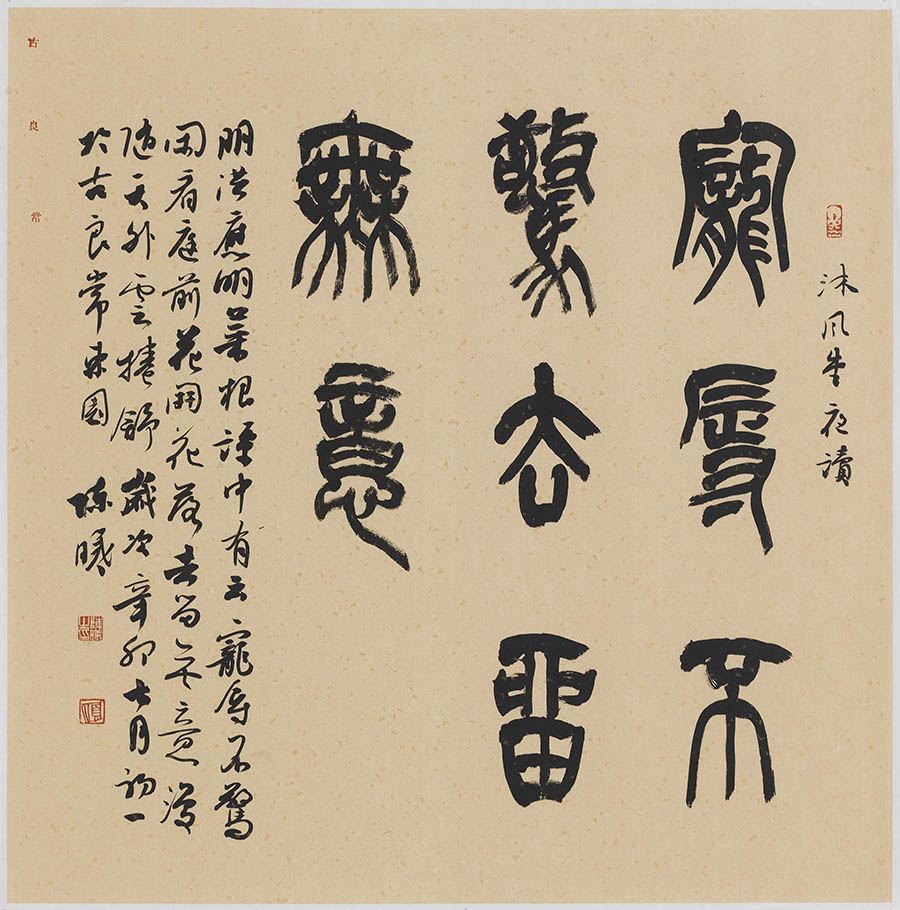 沐風夜讀
寵辱不
驚去留
無意
明洪應明菜根譚中有云寵辱不驚
閑看庭前花開花落去留無意漫
随天外雲捲舒歲次辛卯七月初一
於古良常東園 陳曦
古良常